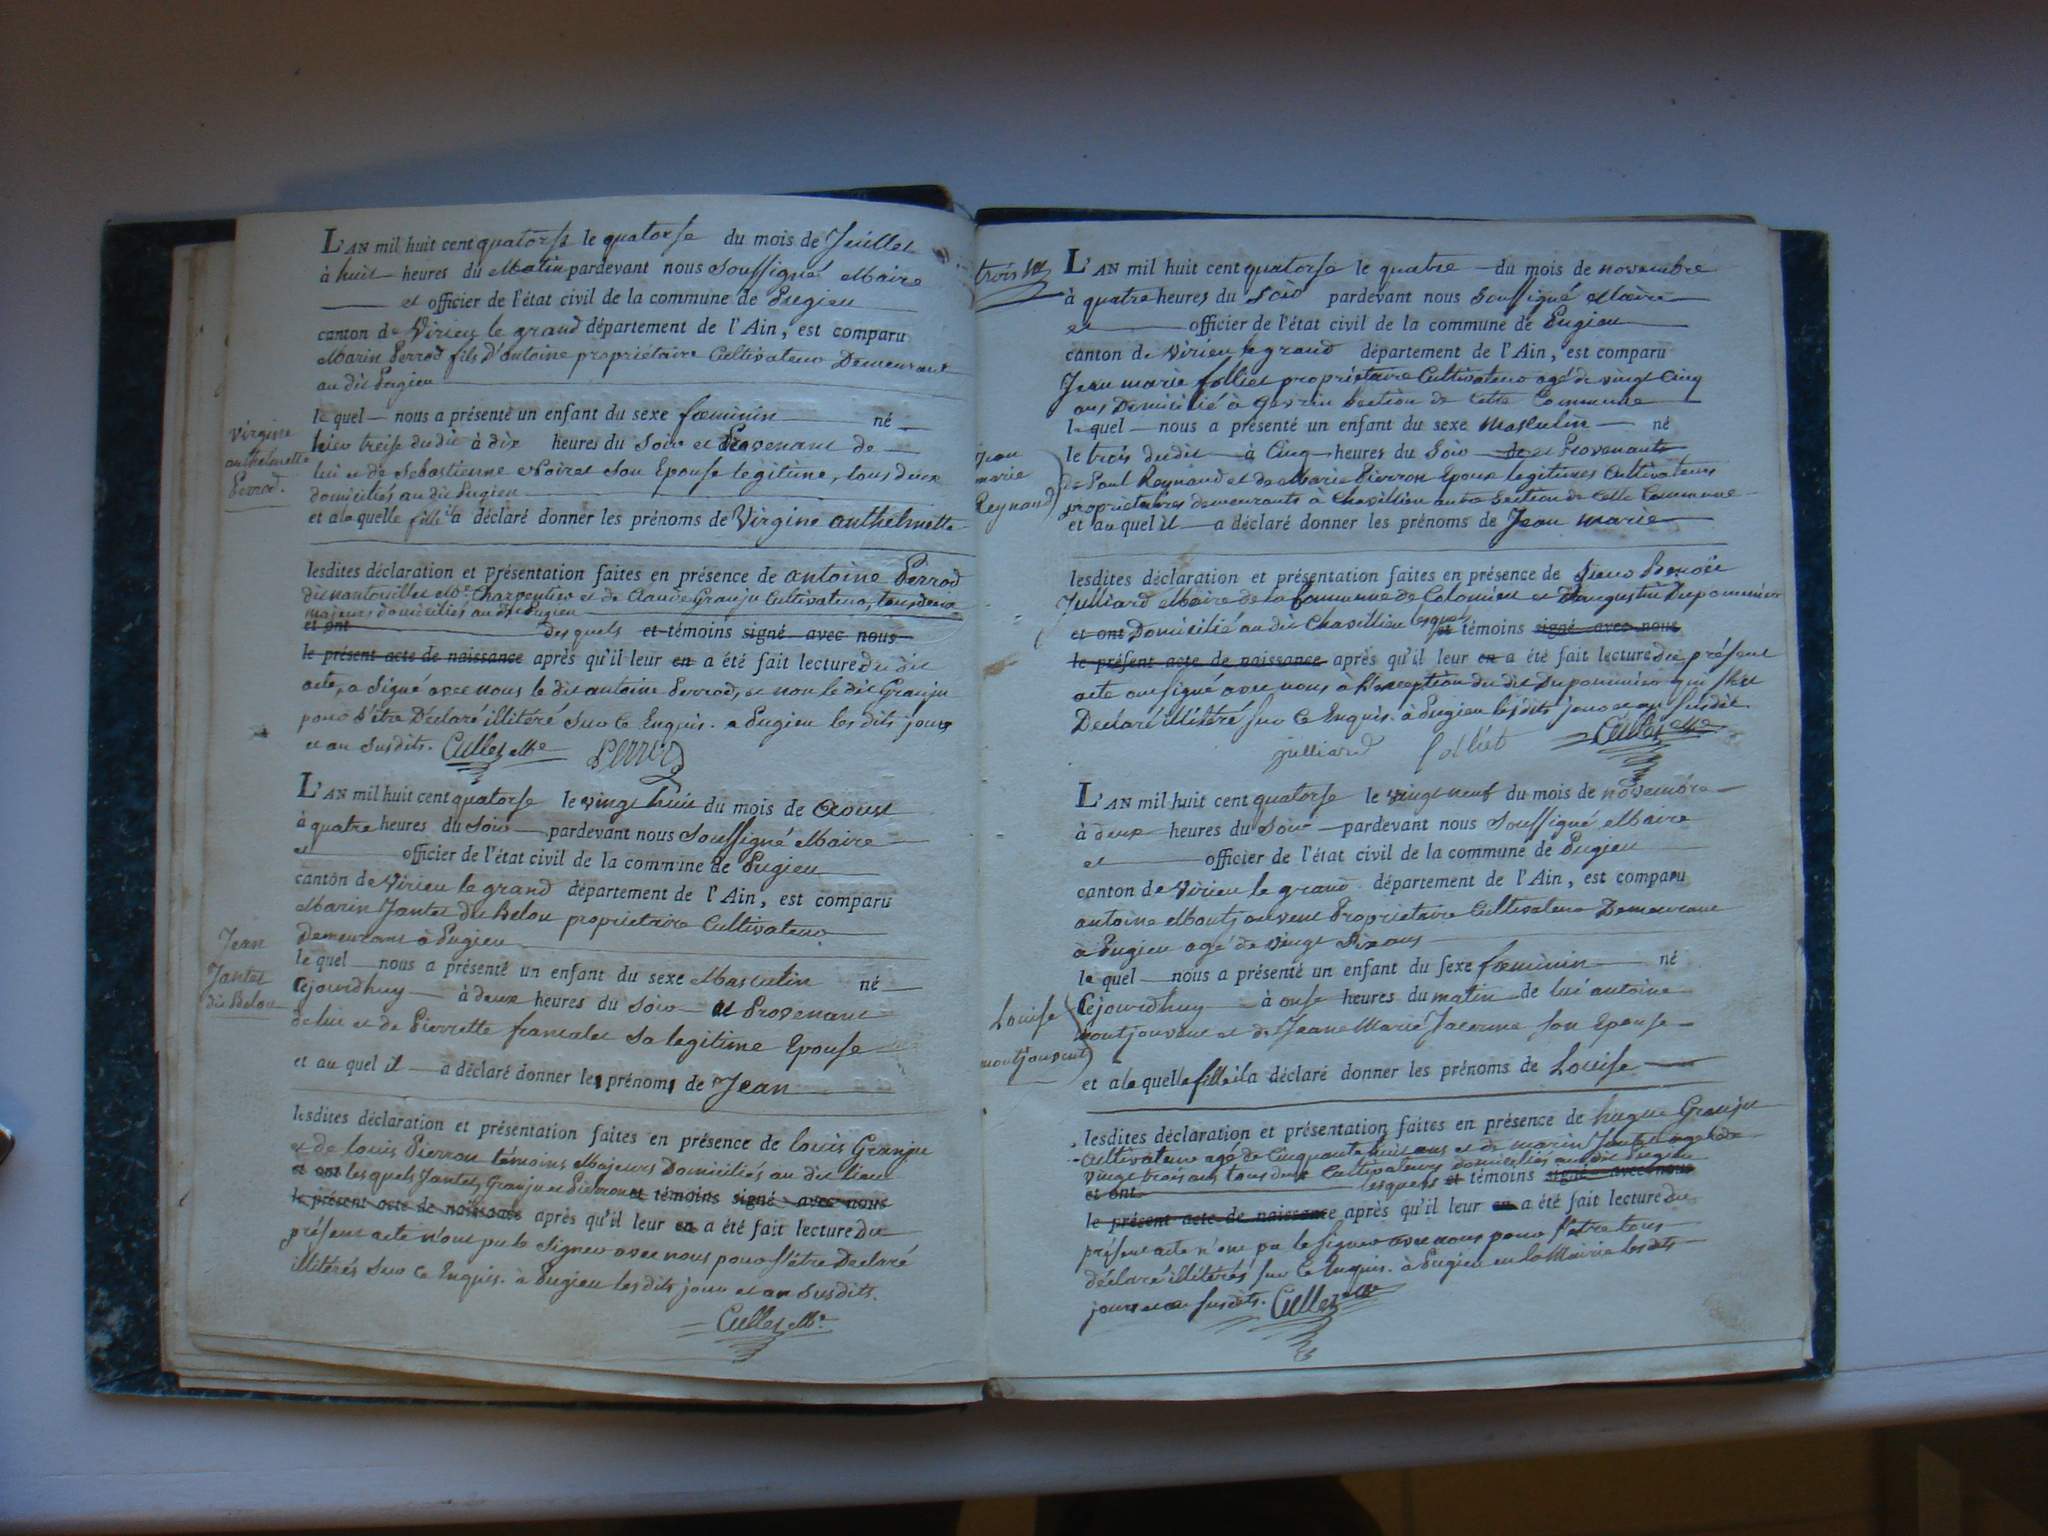 L'AN mil huit cent quatorse le quatorse du mois de Juillet
à huit heures du Matin pardevant nous soussigné Maire
et officier de l'état civil de la commune de Pugieu
canton de Virieu le grand département de l'Ain, est comparu
Marin Perrod fils D'antoine propriétaire Cultivateur Demeurant
au dit Pugieu
le quel nous a présenté un enfant du sexe fœminin né
Virginie
anthelmette
Perrod.
hier treise du dit à dix heures du soir et Provenant de
lui et de Sebastienne son Epouse legitime, tous deux
domiciliés au dit Pugieu
et a la quelle fille il a déclaré donner les prénoms de Virgine anthelmette
lesdites déclaration et présentation faites en présence de antoine Perrod
dit Charpentier et de Claude Granju Cultivateur, tous deux
majeurs domiciliés au dit Pugieu
et ont desquels et témoins signé avec nous
le présent acte de naissance après qu'il leur en a été fait lecture du dit
acte, a signé avec nous le dit antoine Perrod, et non le dit Granju
pour s'être Déclaré illitéré sur ce Enquis. a Pugieu les dits jour
et an susdits. Cullet Me Perrod
L'AN mil huit cent quatorse le vingt huit du mois de Aoust
à quatre heures du soir pardevant nous soussigné Maire
et officier de l'état civil de la commune de Pugieu
canton de Virieu le grand département de l'Ain, est comparu
Marin Jantet dit Belou proprietaire Cultivateur
Demeurant à Pugieu
Jean
Jantet
dit Belou
le quel nous a présenté un enfant du sexe Masculin né
Cejourdhuy à deux heures du soir et Provenant
de lui et de Pierrette sa legitime Epouse
et au quel il a déclaré donner les prénoms de Jean
lesdites déclaration et présentation faites en présence de louis Granju
et de louis Pierron témoins Majeurs Domiciliés au dit lieu
et ont lesquels Jantet, Granju et Pierron et témoins signé avec nous
le présent acte de naissance après qu'il leur en a été fait lecture du
présent acte n'ont pu le signer avec nous pour s'être Déclaré
illitérés sur ce Enquis. à Pugieu les dits jour et an susdits.
Cullet Me
L'AN mil huit cent quatorse le quatre du mois de novembre
à quatre heures du Soir pardevant nous soussigné Maire
et officier de l'état civil de la commune de Pugieu
canton de Virieu le grand département de l'Ain, est comparu
Jean marie folliet propriétaire Cultivateur agé de vingt Cinq
ans Domicilié à section de cette Commune
le quel nous a présenté un enfant du sexe masculin né
Jean
marie
Reynaud
le trois du dit à Cinq heures du Soir de et Provenant
de Paul Reynaud et de Marie Pierron Epoux legitimes Cultivateurs
propriétaires demeurants à Chavillieu autre section de cette Commune
et au quel il a déclaré donner les prénoms de Jean marie
lesdites déclaration et présentation faites en présence de Sieur Benoit
Julliard Maire de la Commune de Colomieu et D'augustin Dupommier
et ont Domicilié au dit Chavillieu lesquels et témoins signé avec nous
le présent acte de naissance après qu'il leur en a été fait lecture du présent
acte ont signé avec nous à l'exception du dit Dupommier qui s'est
Declaré illitéré sur ce Enquis. à Pugieu les dits jour et an susdit.
julliard folliet Cullet Me
L'AN mil huit cent quatorse le vingt neuf du mois de novembre
à deux heures du soir pardevant nous soussigné Maire
et officier de l'état civil de la commune de Pugieu
canton de Virieu le grand département de l'Ain, est comparu
antoine Montjouvent Propriétaire Cultivateur Demeurant
à Pugieu agé de vingt six ans
le quel nous a présenté un enfant du sexe fœminin né
Louise
montjouvent
Cejourdhuy à onse heures du matin de lui antoine
montjouvent et de Jeane Marie son Epouse
et a la quelle fille il a déclaré donner les prénoms de Louise
lesdites déclaration et présentation faites en présence de hugue Granju
Cultivateur agé de Cinquante huit ans et de marin Jantet agé de
vingt trois ans tous deux Cultivateurs domiciliés au dit Pugieu
et ont lesquels et témoins signé avec nous
le présent acte de naissance après qu'il leur en a été fait lecture du
présent acte n'ont pu le signer avec nous pour s'etre tous
déclaré illitérés sur ce Enquis. à Pugieu en la Mairie les dits
jour et an susdits. Cullet Me